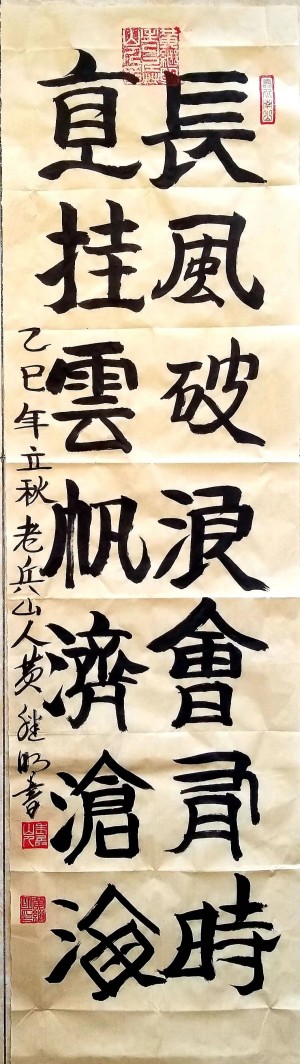 長風破浪會有時
直挂雲帆濟滄海
乙巳年立秋老兵山人黄继明書